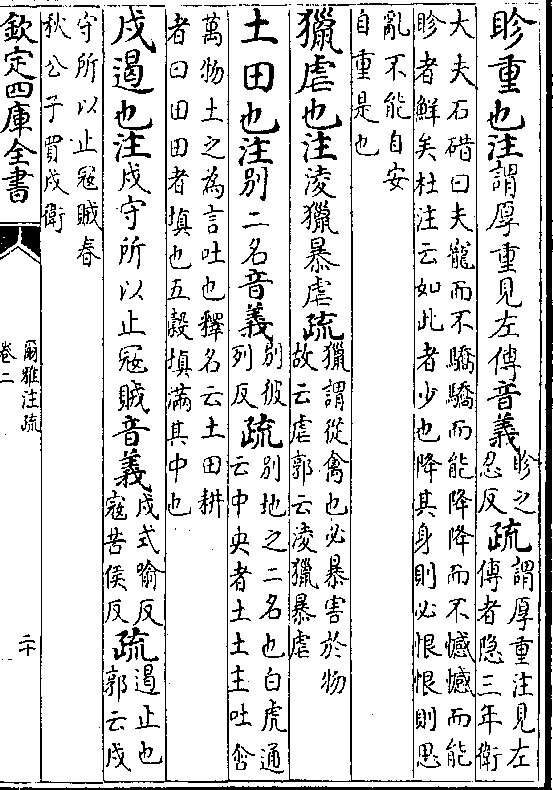 眕重也注謂厚重見左傳音義眕之忍反疏謂厚重注見左傳者隐三年衛
大夫石碏曰夫寵而不驕驕而能降降而不憾憾而能
眕者鮮矣杜注云如此者少也降其身則必恨恨則思
亂不能自安
自重是也
獵虐也注淩獵暴虐疏獵謂從禽也必暴害於物故云虐郭云淩獵暴虐
土田也注别二名音義别彼列反疏别地之二名也白虎通云中央者土土主吐含
萬物土之為言吐也釋名云土田耕
者曰田田者填也五穀填滿其中也
戍遏也注戍守所以止冦賊音義戍式喻反寇苦侯反疏遏止也郭云戍
守所以止冦賊春
秋公子買戍衛
欽定四庫全書
爾雅注疏
卷二
二十